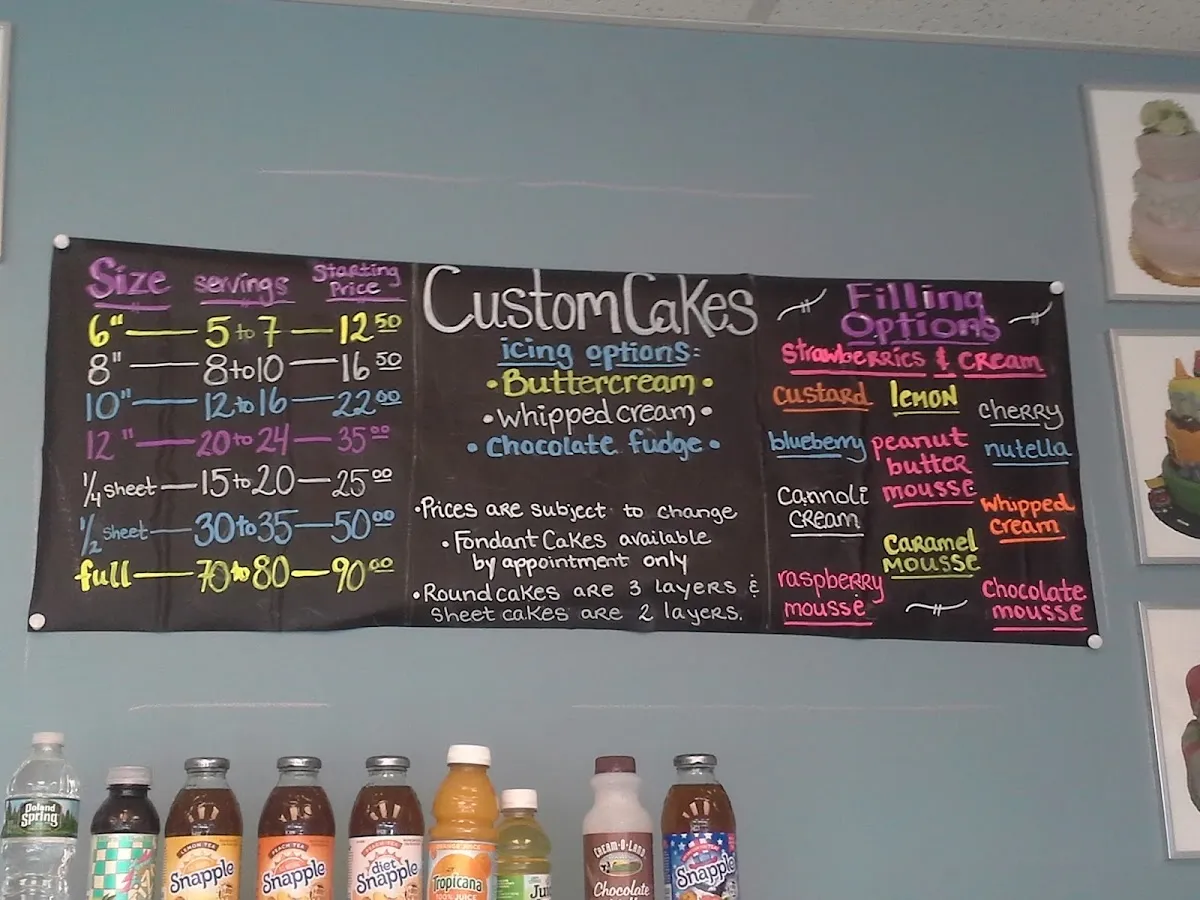 Size servings Starting Price
6" — 5 to 7 — 12 50
8" — 8 to 10 — 16 50
10" — 12 to 16 — 22 00
12" — 20 to 24 — 35 00
1/4 sheet — 15 to 20 — 25 00
1/2 sheet — 30 to 35 — 50 00
full — 70 to 80 — 90 00
Custom Cakes
icing options:
• Buttercream •
• whipped cream •
• Chocolate fudge •
• Prices are subject to change
• Fondant Cakes available
by appointment only
• Round cakes are 3 layers &
sheet cakes are 2 layers.
Filling
Options
strawberries & cream
custard lemon cherry
blueberry peanut butter mousse nutella
Cannoli cream
whipped cream
caramel mousse
raspberry mousse
Chocolate mousse
Poland
Spring
LEMON TEA
Snapple
PEACH TEA
Snapple
PEACH TEA
diet
Snapple
ORANGE JUICE
Tropicana
100% JUICE
CREAM-O-LAND
Chocolate
Snapple